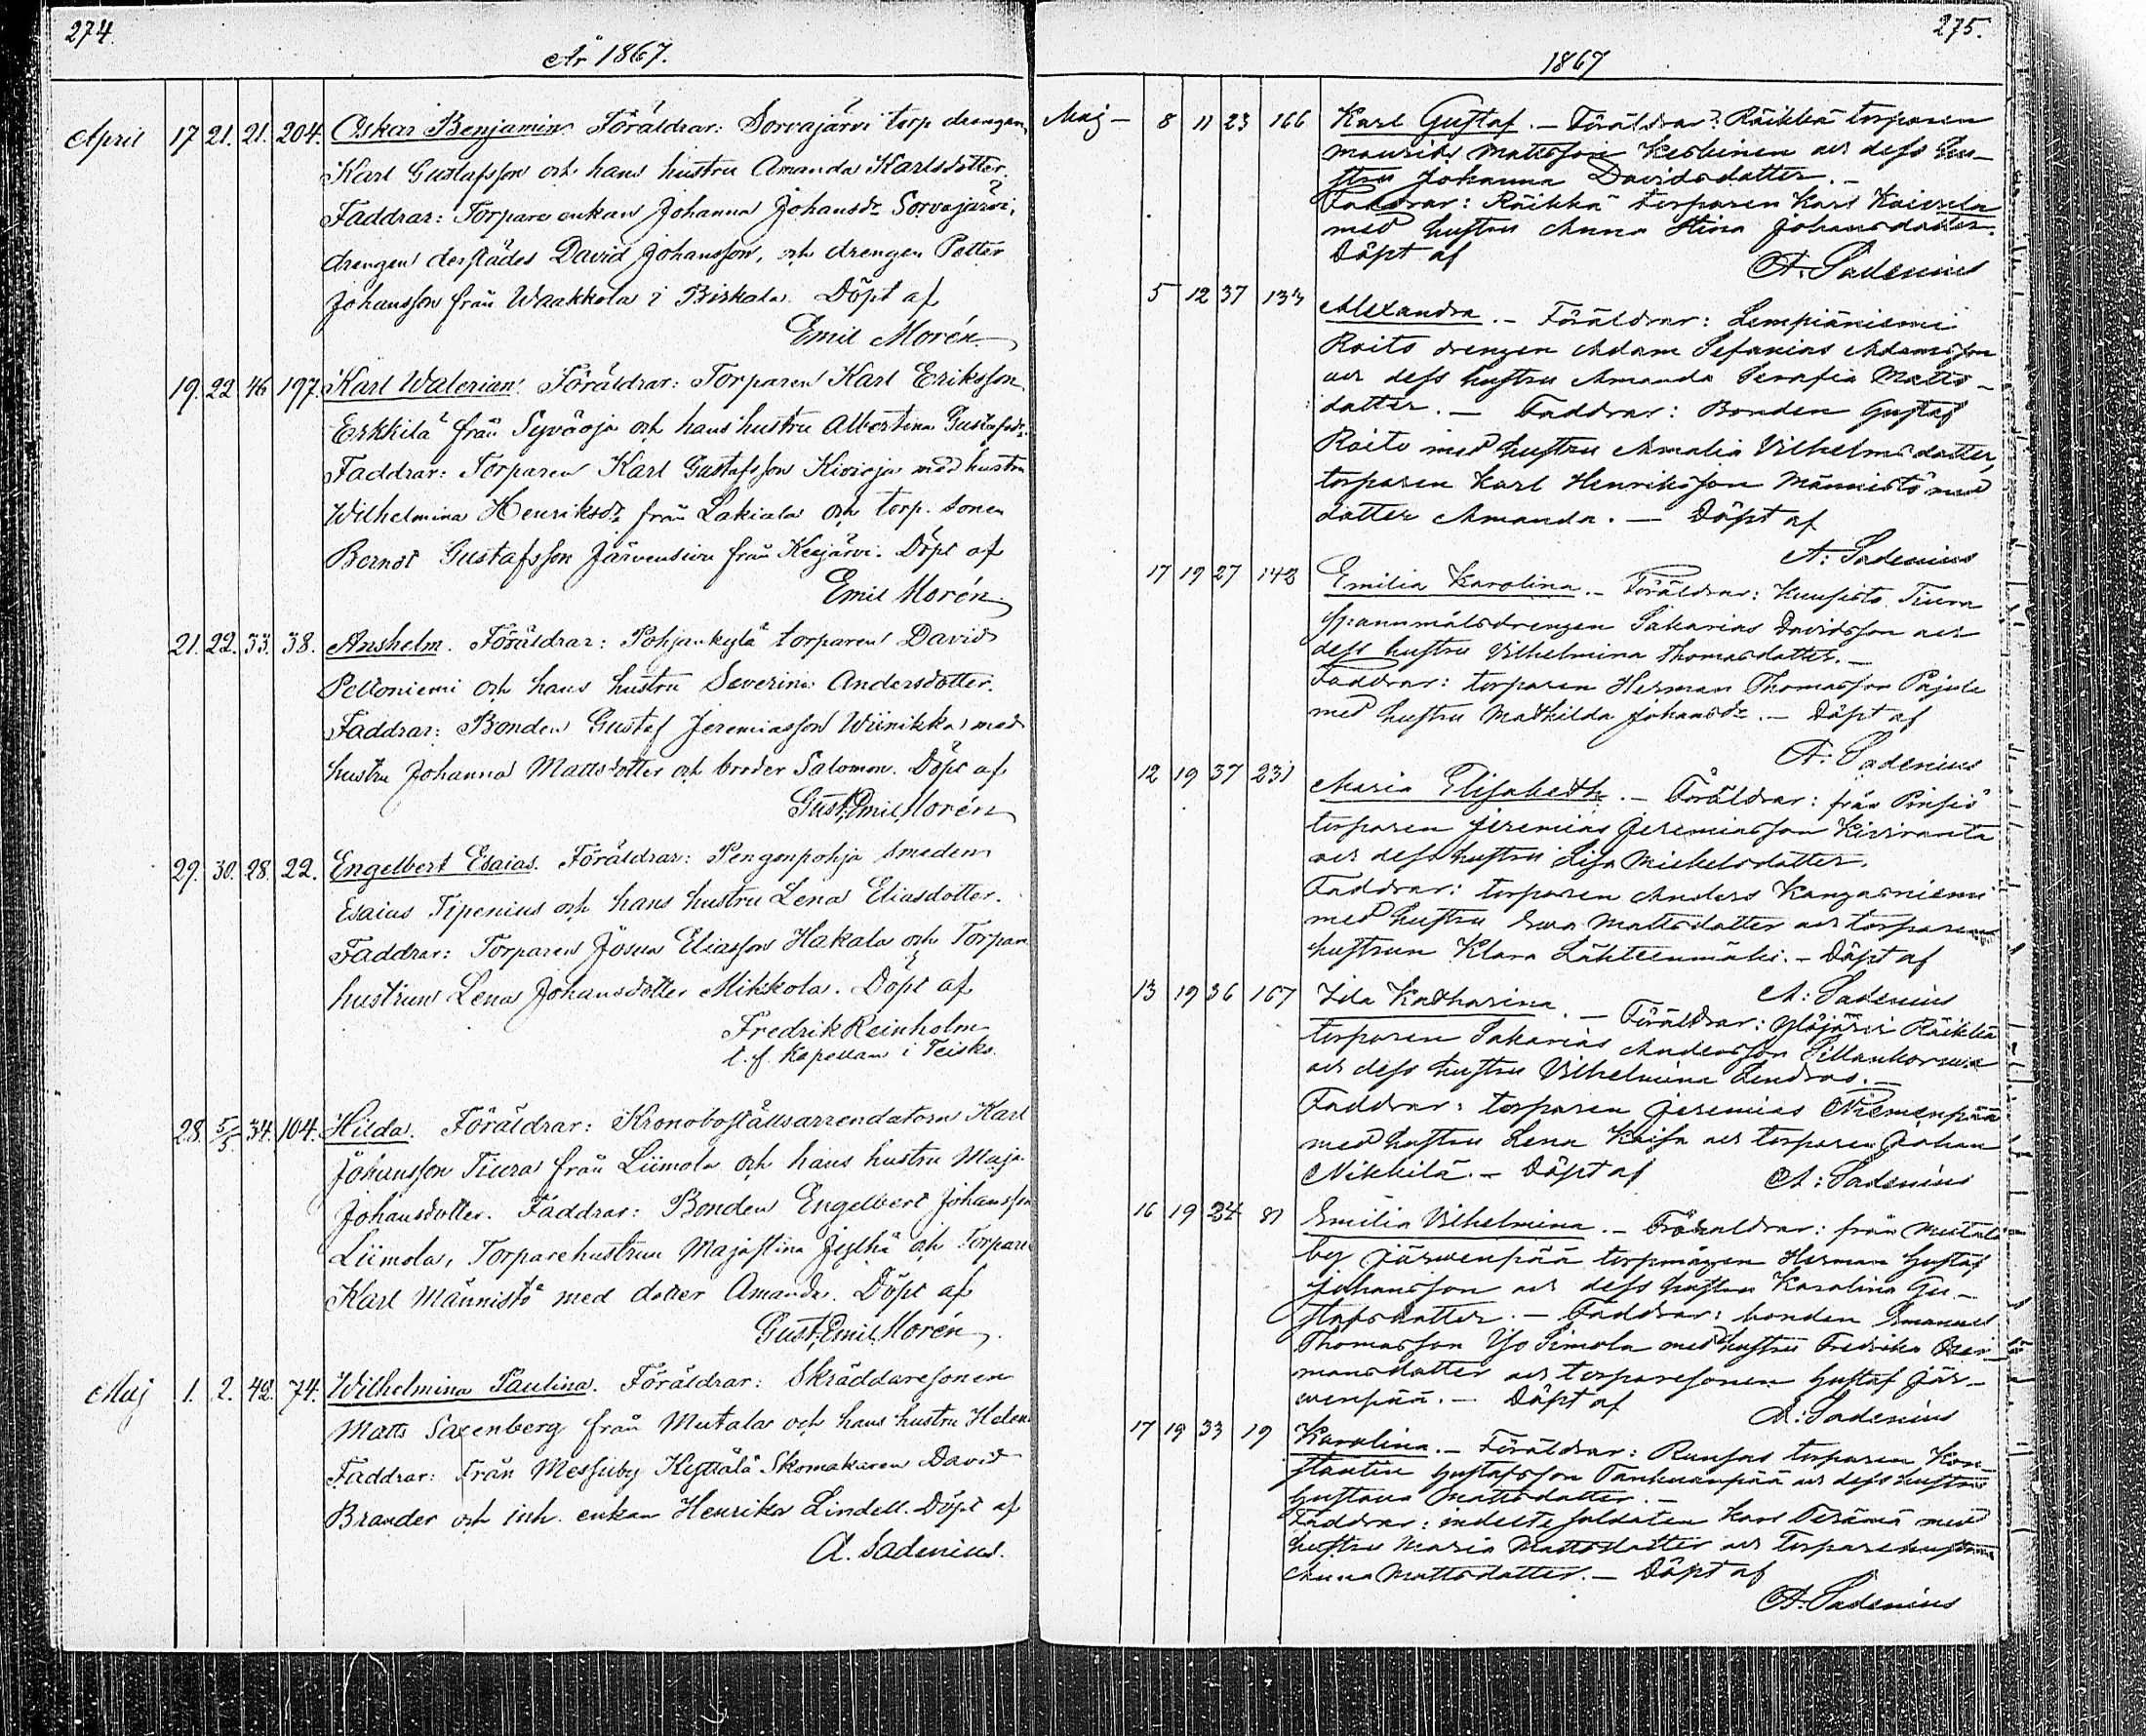 274.
År 1867.
April 17. 21. 21. 204. Oskar Benjamin. Föräldrar: Sorvajärvi torp drengen
Karl Gustafsson och hans hustru Amanda Karlsdotter.
Faddrar: Torpare enkan Johanna Johansdr Sorvajärvi,
drengen derstädes David Johansson, och drengen Petter
Johansson från Waakkola i Birkala. Döpt af
Emil Morén
19. 22. 46. 197. Karl Walerian. Föräldrar: Torparen Karl Eriksson
Erkkilä från Syväoja och hans hustru Albertina Gustafsdr.
Faddrar: Torparen Karl Gustafsson Kivioja med hustru
Wilhelmina Henriksdr från Lakiala och torp. sonen
Berndt Gustafsson Järvensivu från Keijärvi. Döpt af
Emil Morén
21. 22. 33. 38. Anshelm. Föräldrar: Pohjankylä torparen David
Peltoniemi och hans hustru Severina Andersdotter.
Faddrar: Bonden Gustaf Jeremiasson Wiinikka med
hustru Johanna Mattsdotter och broder Salomon. Döpt af
Gust. Emil Morén
29. 30. 28. 22. Engelbert Esaias. Föräldrar: Pengonpohja smeden
Esaias Tipenius och hans hustru Lena Eliasdotter.
Faddrar: Torparen Josua Eliasson Hakala och Torpar
hustrun Lena Johansdotter Mikkola. Döpt af
Fredrik Reinholm
t. f. Kapellan i Teisko.
28. 5/5 34. 104. Hilda. Föräldrar: Kronoboställsarrendatorn Karl
Johansson Tiura från Liimola och hans hustru Maja
Johansdotter. Faddrar: Bonden Engelbert Johansson
Liimola, Torparehustrun Majastina Jylhä och Torparen
Karl Männistö med dotter Amanda. Döpt af
Gust. Emil Morén.
Maj 1. 2. 42. 74. Wilhelmina Paulina. Föräldrar: Skräddaresonen
Matts Saxenberg från Mutala och hans hustru Helena
Faddrar: Från Messuby Kyttälä Skomakaren David
Brander och inh. enkan Henrika Lindell. Döpt af
A. Sadenius.
275.
1867
Maj – 8 11 23 166 Karl Gustaf. – Föräldrar: Räikkä torparen
Maurits Mattsson Keskinen och dess hu-
stru Johanna Davidsdotter. –
Faddrar: Räikkä torparen Karl
med hustru Anna Stina Johansdotter.
Döpt af
A. Sadenius
5 12 37 133 Alexandra. – Föräldrar: Lempiäniemi
Roito drengen Adam Sefanias Adamsson
och dess hustru Amanda Serafia Matts-
dotter. – Faddrar: Bonden Gustaf
Roito med hustru Amalia Vilhelmsdotter,
torparen Karl Henriksson Männistö med
dotter Amanda. – Döpt af
A: Sadenius
17 19 27 142 Emilia Karolina. – Föräldrar: Kuusisto Tiura
spannmålsdrengen Sakarias Davidsson och
dess hustru Vilhelmina Thomasdotter. –
Faddrar: torparen Herman Thomasson Pajula
med hustru Mathilda Johansdr. – Döpt af
A: Sadenius
12 19 37 231 Maria Elisabeth. – Föräldrar: från Pinsiö
torparen Jeremias Jeremiasson Kiviranta
och dess hustru Lisa Mickelsdotter.
Faddrar: torparen Anders Kangasniemi
med hustru Eva Mattsdotter och torpare
hustrun Klara Lähteenmäki. – Döpt af
A: Sadenius
13 19 36 167 Ida Katharina. – Föräldrar: Ylöjärvi Räikkä
torparen Sakarias Andersson Sillankorva
och dess hustru Vilhelmina Lindroos. –
Faddrar: torparen Jeremias Niemenpää
med hustru Lena Kaisa och torparen Johan
Nikkilä. – Döpt af
A: Sadenius
16 19 24 87 Emilia Vilhelmina. – Föräldrar: från Mutala
by Järvenpää torpmågen Herman Gustaf
Johansson och dess hustru Karolina Gu-
stafsdotter. – Faddrar: bonden Emanuel
Thomasson Yso Simola med hustru Fredrika Her-
mansdotter och torparesonen Gustaf Jär-
wenpää. – Döpt af
A: Sadenius
17 19 33 19 Karolina. – Föräldrar: Runsas torparen Kon-
stantin Gustafsson Tankuanpää och dess hustru
Gustava Mattsdotter. –
Faddrar: indelte soldaten Karl Terämä med
hustru Maria Mattsdotter och Torparehustrun
Anna Mattsdotter. – Döpt af
A. Sadenius